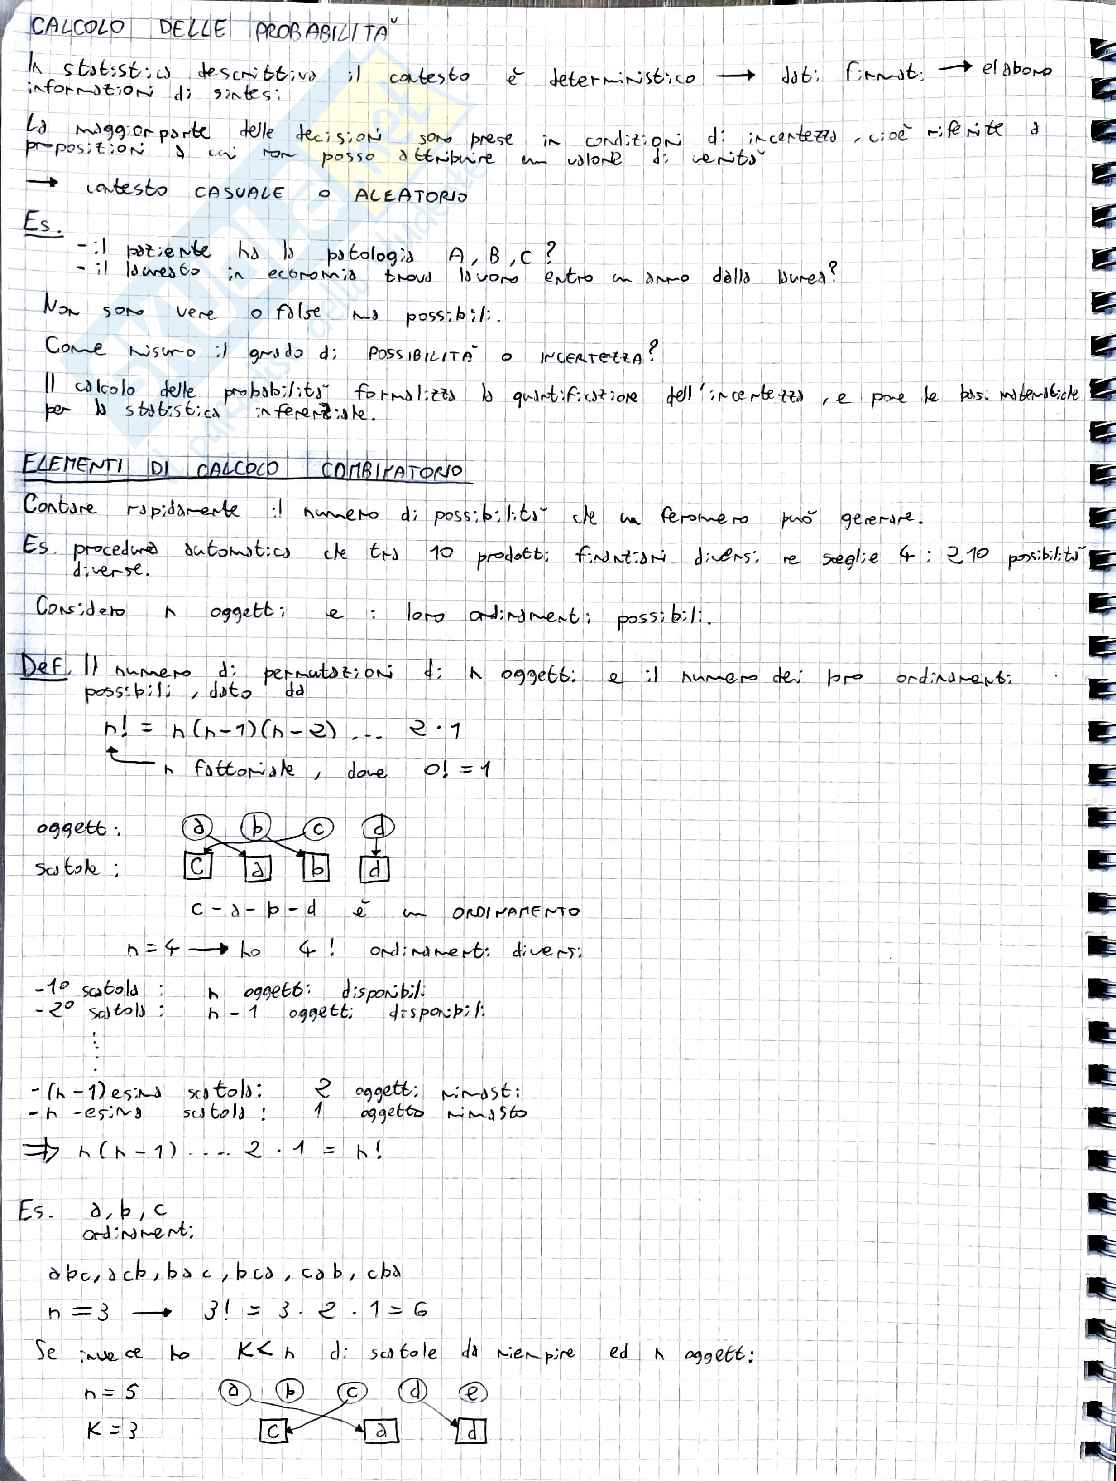 CALCOLO DELLE PROBABILITA'
In statistica descrittiva il contesto è deterministico → dati firmati → elaboro
informazioni di sintesi
La maggior parte delle decisioni sono prese in condizioni di incertezza, cioè riferite a
proposizioni a cui non posso attribuire un valore di verità
→ contesto CASUALE o ALEATORIO
Es.
- il paziente ha la patologia A, B, C?
- il laureato in economia trova lavoro entro un anno dalla laurea?
Non sono vere o false ma possibili.
Come misuro il grado di POSSIBILITÀ o INCERTEZZA?
Il calcolo delle probabilità formalizza la quantificazione dell'incertezza, e pone le basi matematiche
per la statistica inferenziale.
ELEMENTI DI CALCOLO COMBINATORIO
Contare rapidamente il numero di possibilità che un fenomeno può generare.
Es. procedura automatica che tra 10 prodotti finanziari diversi ne sceglie 4 : 210 possibilità
diverse.
Considero n oggetti e i loro ordinamenti possibili.
Def. Il numero di permutazioni di n oggetti e il numero dei loro ordinamenti
possibili, dato da
n! = n(n-1)(n-2) ... 2·1
n fattoriale, dove 0! = 1
oggetti: a b c d
scatole: c a b d
c-a-b-d è un ORDINAMENTO
n=4 → ho 4! ordinamenti diversi
-1° scatola : n oggetti disponibili
-2° scatola : n-1 oggetti disponibili
-(n-1)esima scatola: 2 oggetti rimasti
-n-esima scatola: 1 oggetto rimasto
⇒ n(n-1) .... 2 · 1 = n!
Es. a, b, c
ordinamenti
abc, acb, bac, bca, cab, cba
n=3 → 3! = 3 · 2 · 1 = 6
Se invece ho K<n di scatole da riempire ed n oggetti:
n=5 a b c d e
K=3 c a d